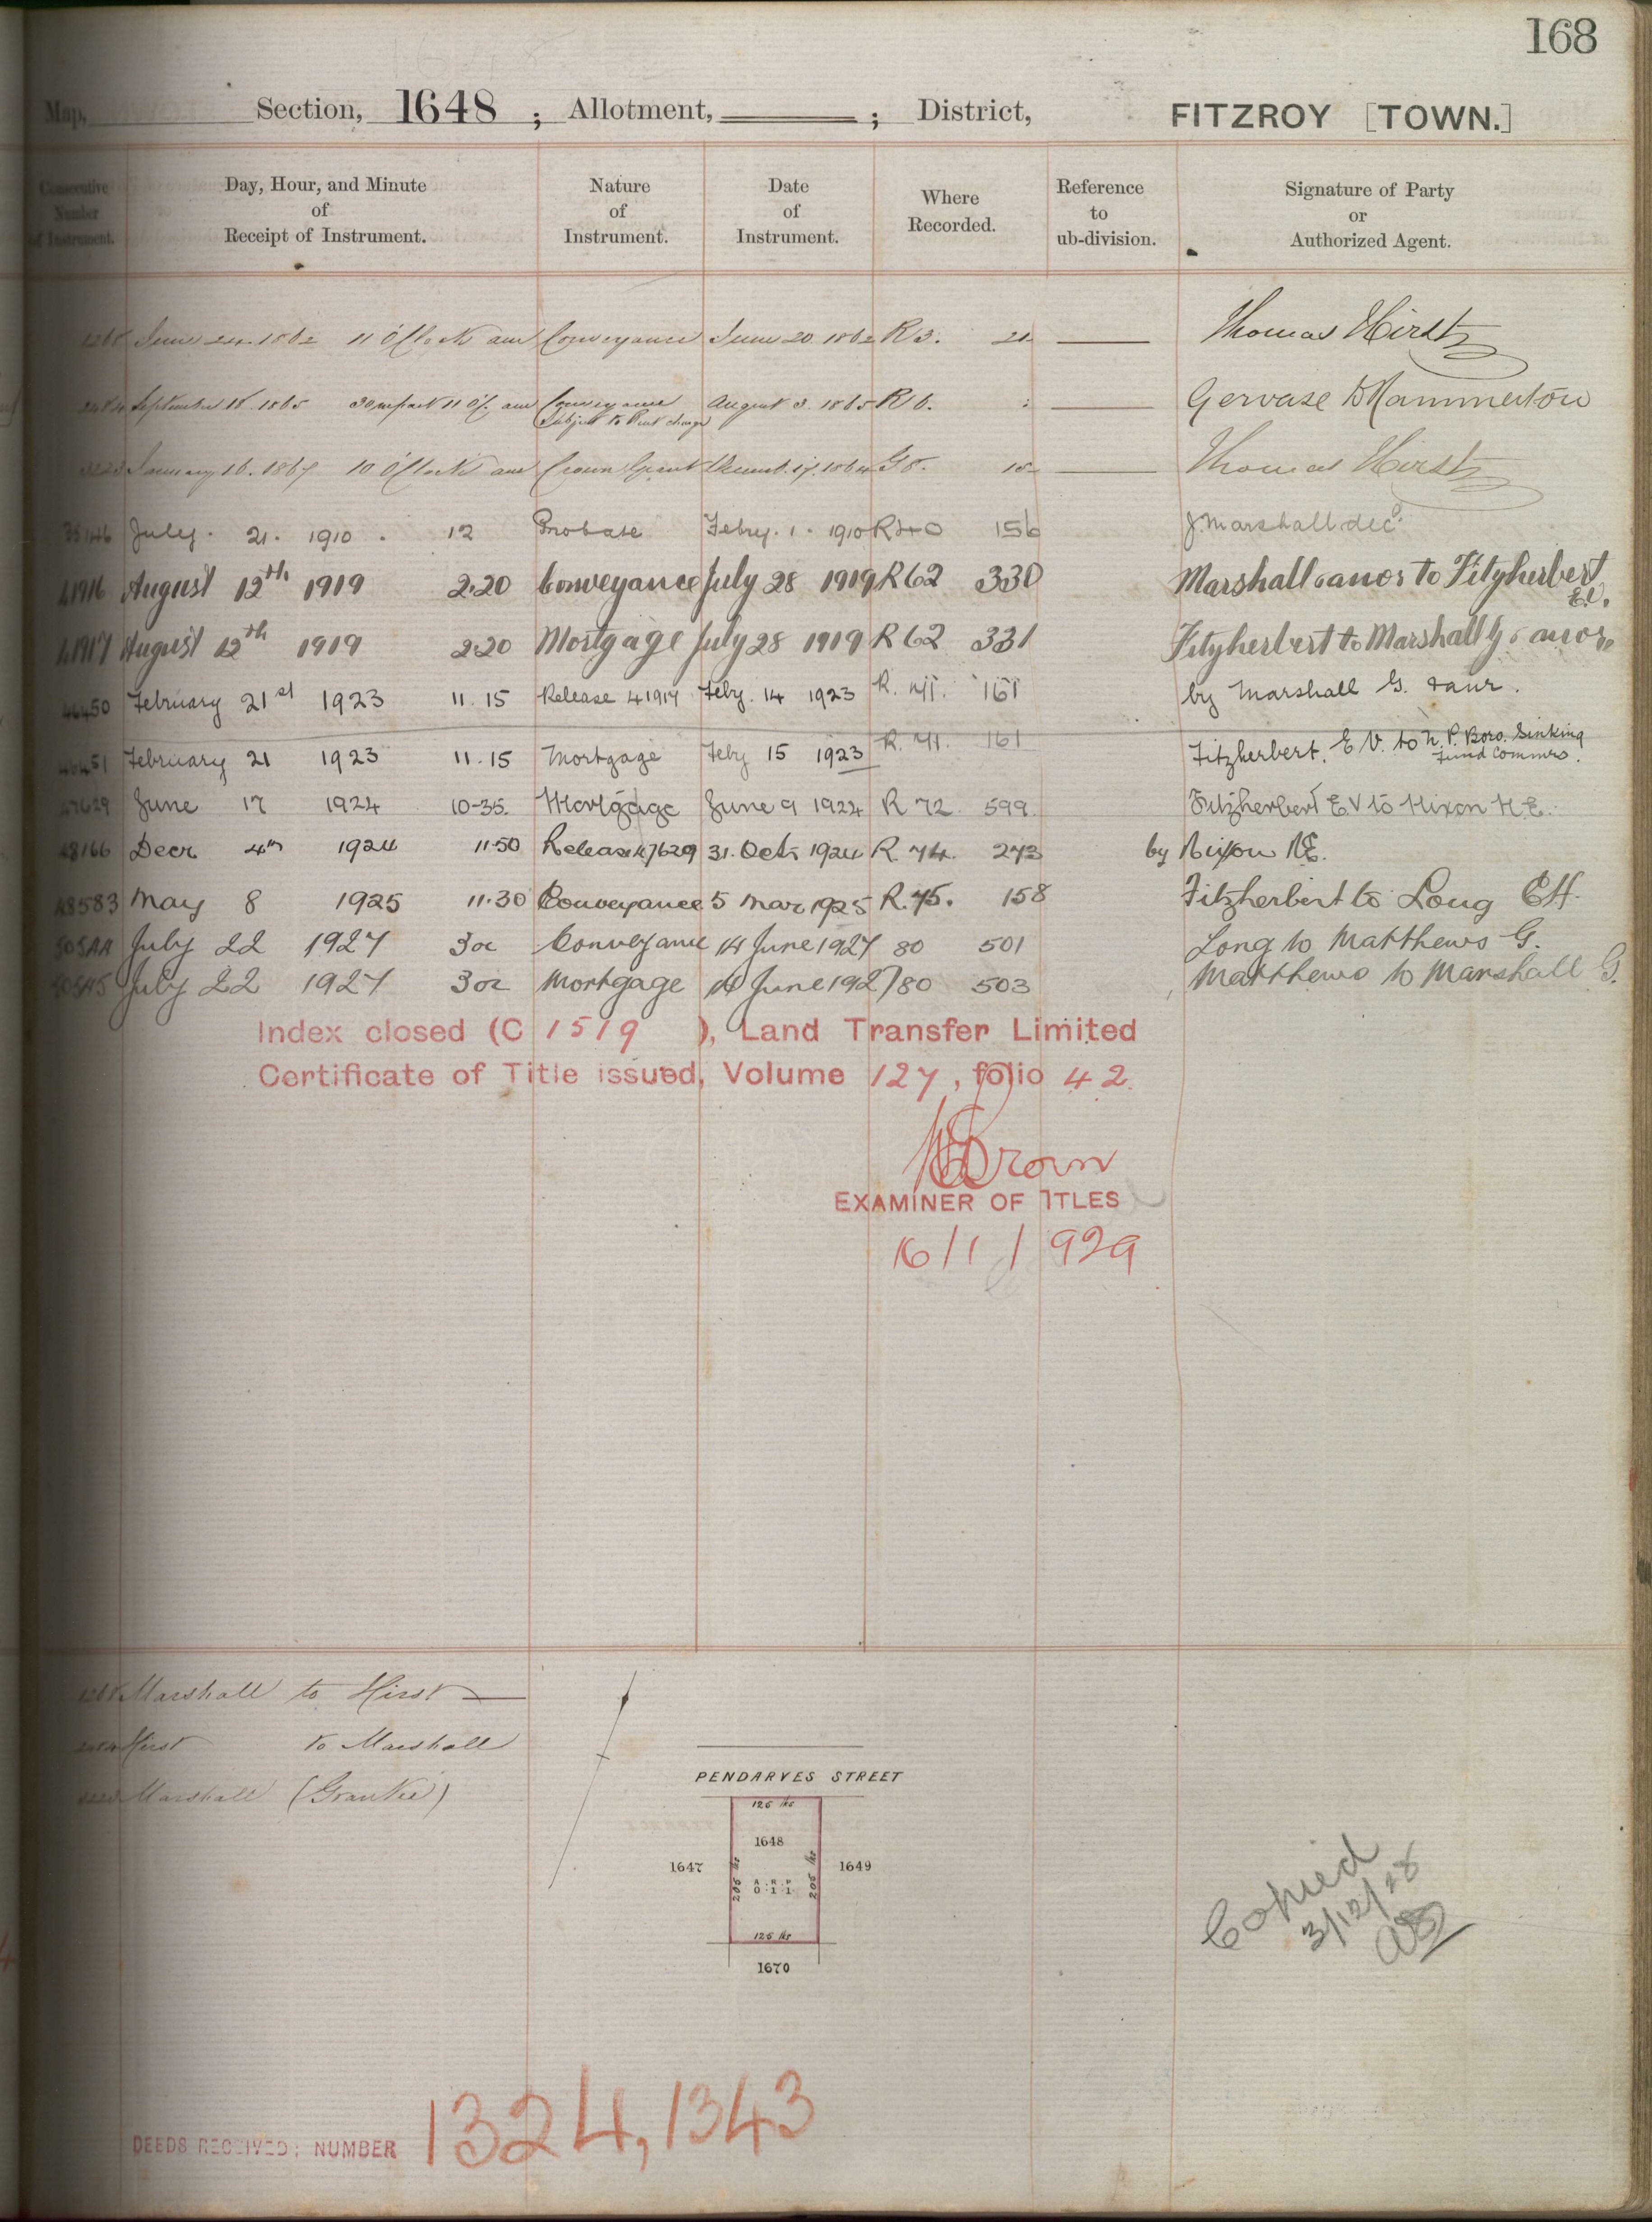 168
Map, Section, 1648 ; Allotment, ; District, FITZROY [TOWN.]
Consecutive Number of Instrument.
Day, Hour, and Minute of Receipt of Instrument.
Nature of Instrument.
Date of Instrument.
Where Recorded.
Reference to ub-division.
Signature of Party or Authorized Agent.
June 24. 1862 11 O'Clock am Conveyance June 20. 1862 R3. 21 Thomas Hirst
September 18. 1865 30 m past 11 O'C. am Conveyance August 3. 1865 R6. Gervase D Hammerton
Subject to Rent charge
January 16. 1867 10 O'Clock am Crown Grant G8. Thomas Hirst
July. 21. 1910. 12 Probate Feby. 1. 1910 R40 156 J. Marshall decd.
41916 August 12th 1919 2.20 Conveyance July 28 1919 R62 330 Marshall & anor to Fitzherbert E.V.
41917 August 12th 1919 2.20 Mortgage July 28 1919 R62 331 Fitzherbert to Marshall G & anor
46450 February 21st 1923 11.15 Release 41917 Feby. 14 1923 R. 71. 161 by Marshall G. & anr.
46451 February 21 1923 11.15 Mortgage Feby 15 1923 R. 71. 161 Fitzherbert. E V. to N. P. Boro. Sinking Fund Commrs.
47629 June 17 1924 10-35. Mortgage June 9 1924 R 72. 599. Fitzherbert E V to Nixon H.E.
48166 Decr 4th 1924 11.50 Release 47629 31. Oct. 1924 R. 74. 273 by Nixon H.E.
48583 May 8 1925 11.30 Conveyance 5 Mar 1925 R. 75. 158 Fitzherbert to Long E H.
July 22 1927 3 oc Conveyance 14 June 1927 80 501 Long to Matthews G.
July 22 1927 3 oc Mortgage 14 June 1927 80 503 Matthews to Marshall G.
Index closed (C 1519 ), Land Transfer Limited
Certificate of Title issued, Volume 127, folio 42.
Brown
EXAMINER OF TITLES
16/1/1929
Marshall to Hirst
Hirst to Marshall
Marshall (Grantee)
PENDARVES STREET
125 lks
1648
1647
1649
206 lks
206 lks
A. R. P.
0 : 1 : 1
125 lks
1670
Copied
3/12/28
DEEDS RECEIVED: NUMBER 1324, 1343